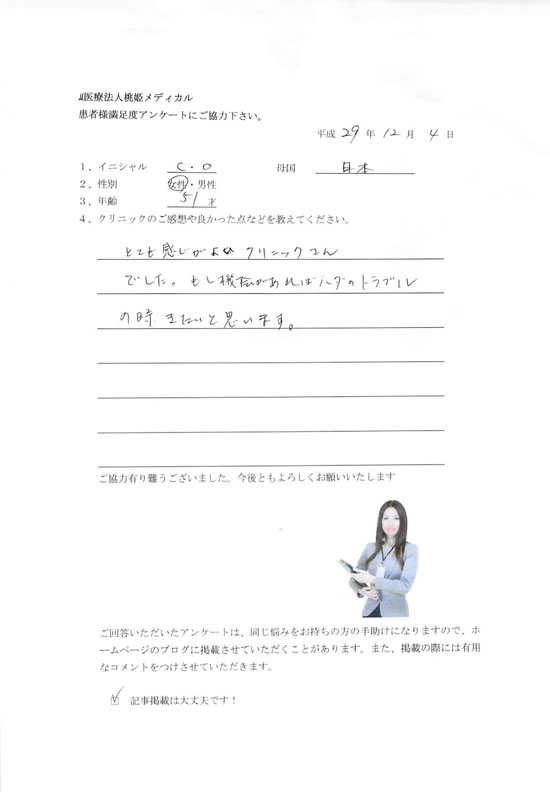 医療法人桃姫メディカル
患者様満足度アンケートにご協力下さい。
平成 29 年 12 月 4 日
1、イニシャル C・O 母国 日本
2、性別 女性・男性
3、年齢 51 才
4、クリニックのご感想や良かった点などを教えてください。
とても感じがよい クリニックさん
でした。もし機会があればハダのトラブル
の時 きたいと思います。
ご協力有り難うございました。今後ともよろしくお願いいたします
ご回答いただいたアンケートは、同じ悩みをお持ちの方の手助けになりますので、ホ
ームページのブログに掲載させていただくことがあります。また、掲載の際には有用
なコメントをつけさせていただきます。
記事掲載は大丈夫です！